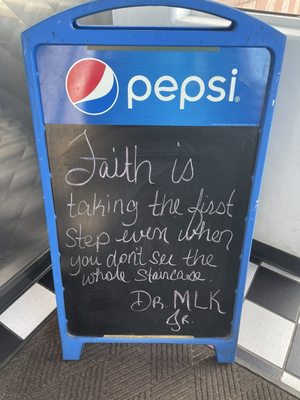 pepsi®
Faith is
taking the first
Step even when
you don't see the
whole Staircase.
DR. MLK
Jr.